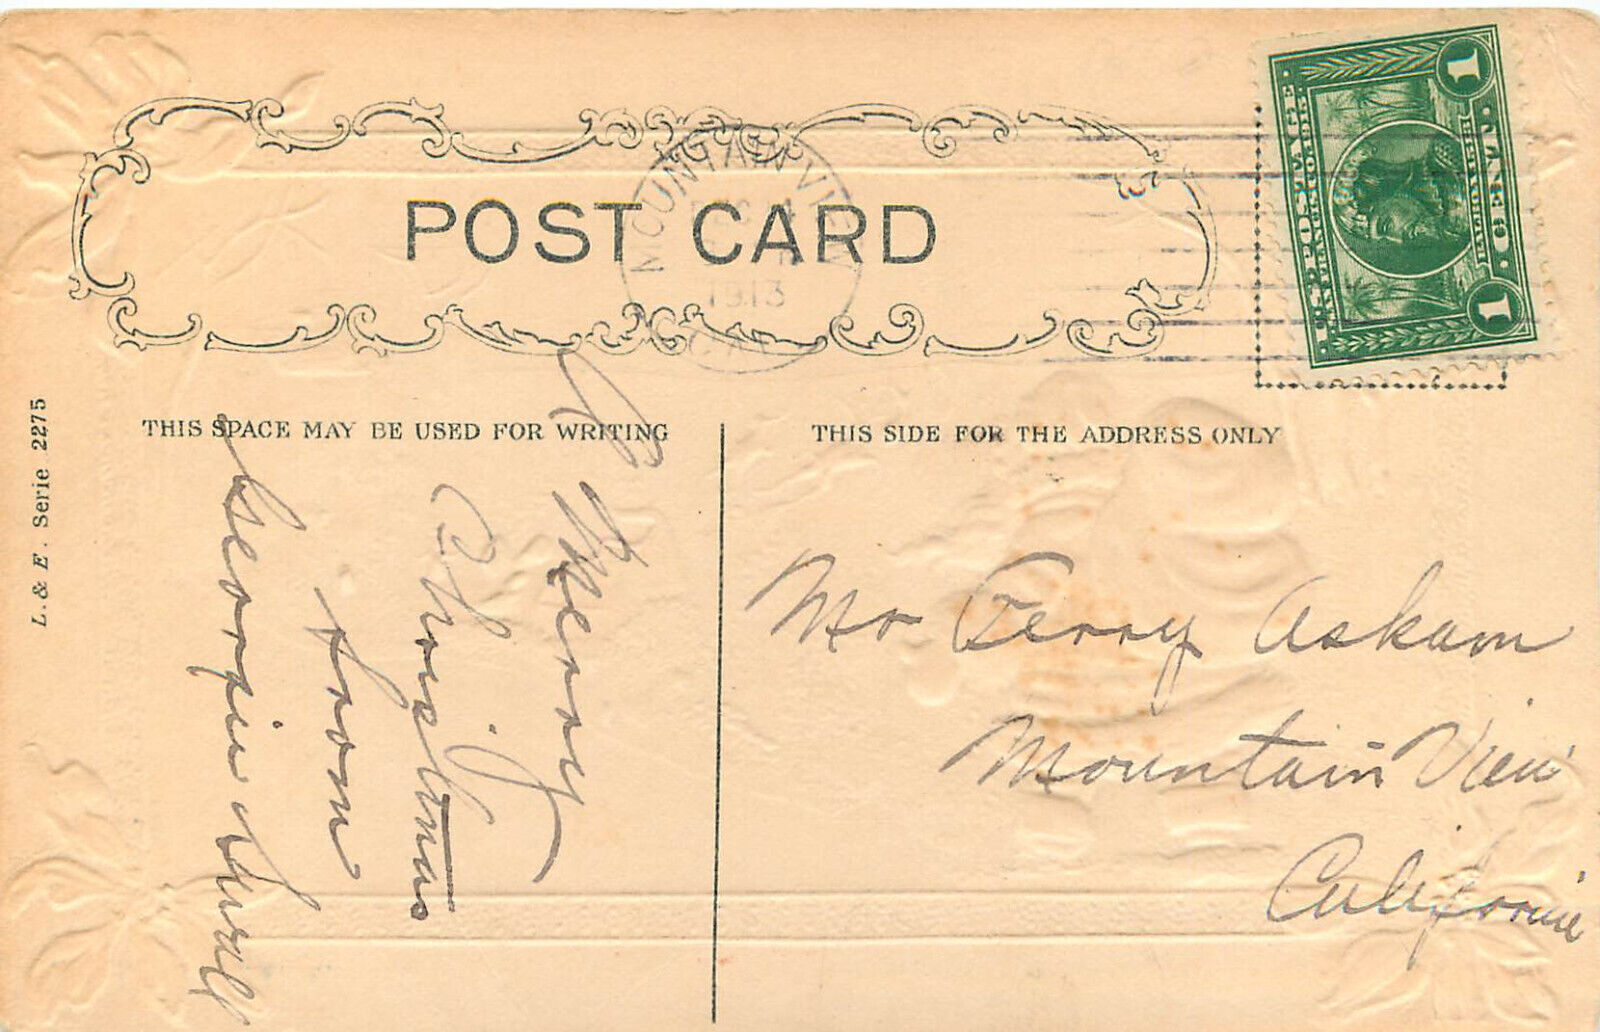 POST CARD
MOUNTAIN VIEW
1913
CAL
U.S. POSTAGE
SAN FRANCISCO 1915
BALBOA 1513
1 CENT 1
THIS SPACE MAY BE USED FOR WRITING
THIS SIDE FOR THE ADDRESS ONLY
L. & E. Serie 2275
A
Merry
Christmas
from
Georgie
Mr Gerry Askam
Mountain View
California